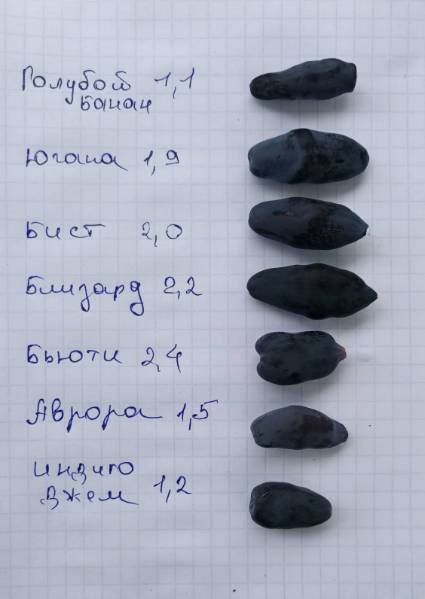 Голубой 1,1
Банан
Югана 1,9
Бист 2,0
Близард 2,2
Бьюти 2,4
Аврора 1,5
Индиго
Джем 1,2